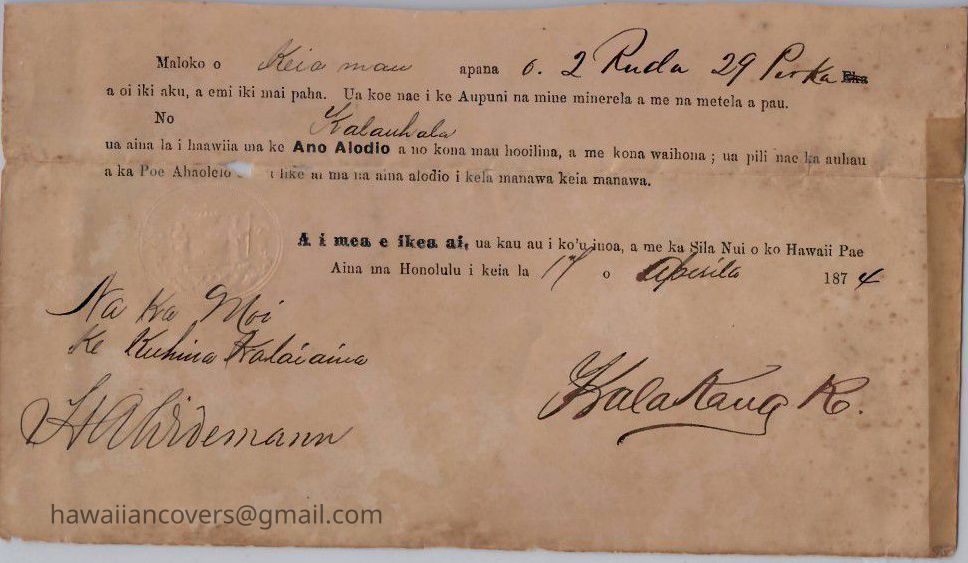 Maloko o Keia mau apana o. 2 Ruda 29 Perka Eka
a oi iki aku, a emi iki mai paha. Ua koe nae i ke Aupuni na mine minerela a me na metela a pau.
No Kalauhala
ua aina la i haawiia ma ke Ano Alodio a no kona mau hooilina, a me kona waihona; ua pili nae ka auhau
a ka Poe Ahaolelo i like ai ma na aina alodio i kela manawa keia manawa.
A i mea e ikea ai, ua kau au i ko'u inoa, a me ka Sila Nui o ko Hawaii Pae
Aina ma Honolulu i keia la 17 o Aperila 1874
Na ka Moi
Ke Kuhina Kalaiaina
H A Widemann
Kalakaua R.
hawaiiancovers@gmail.com